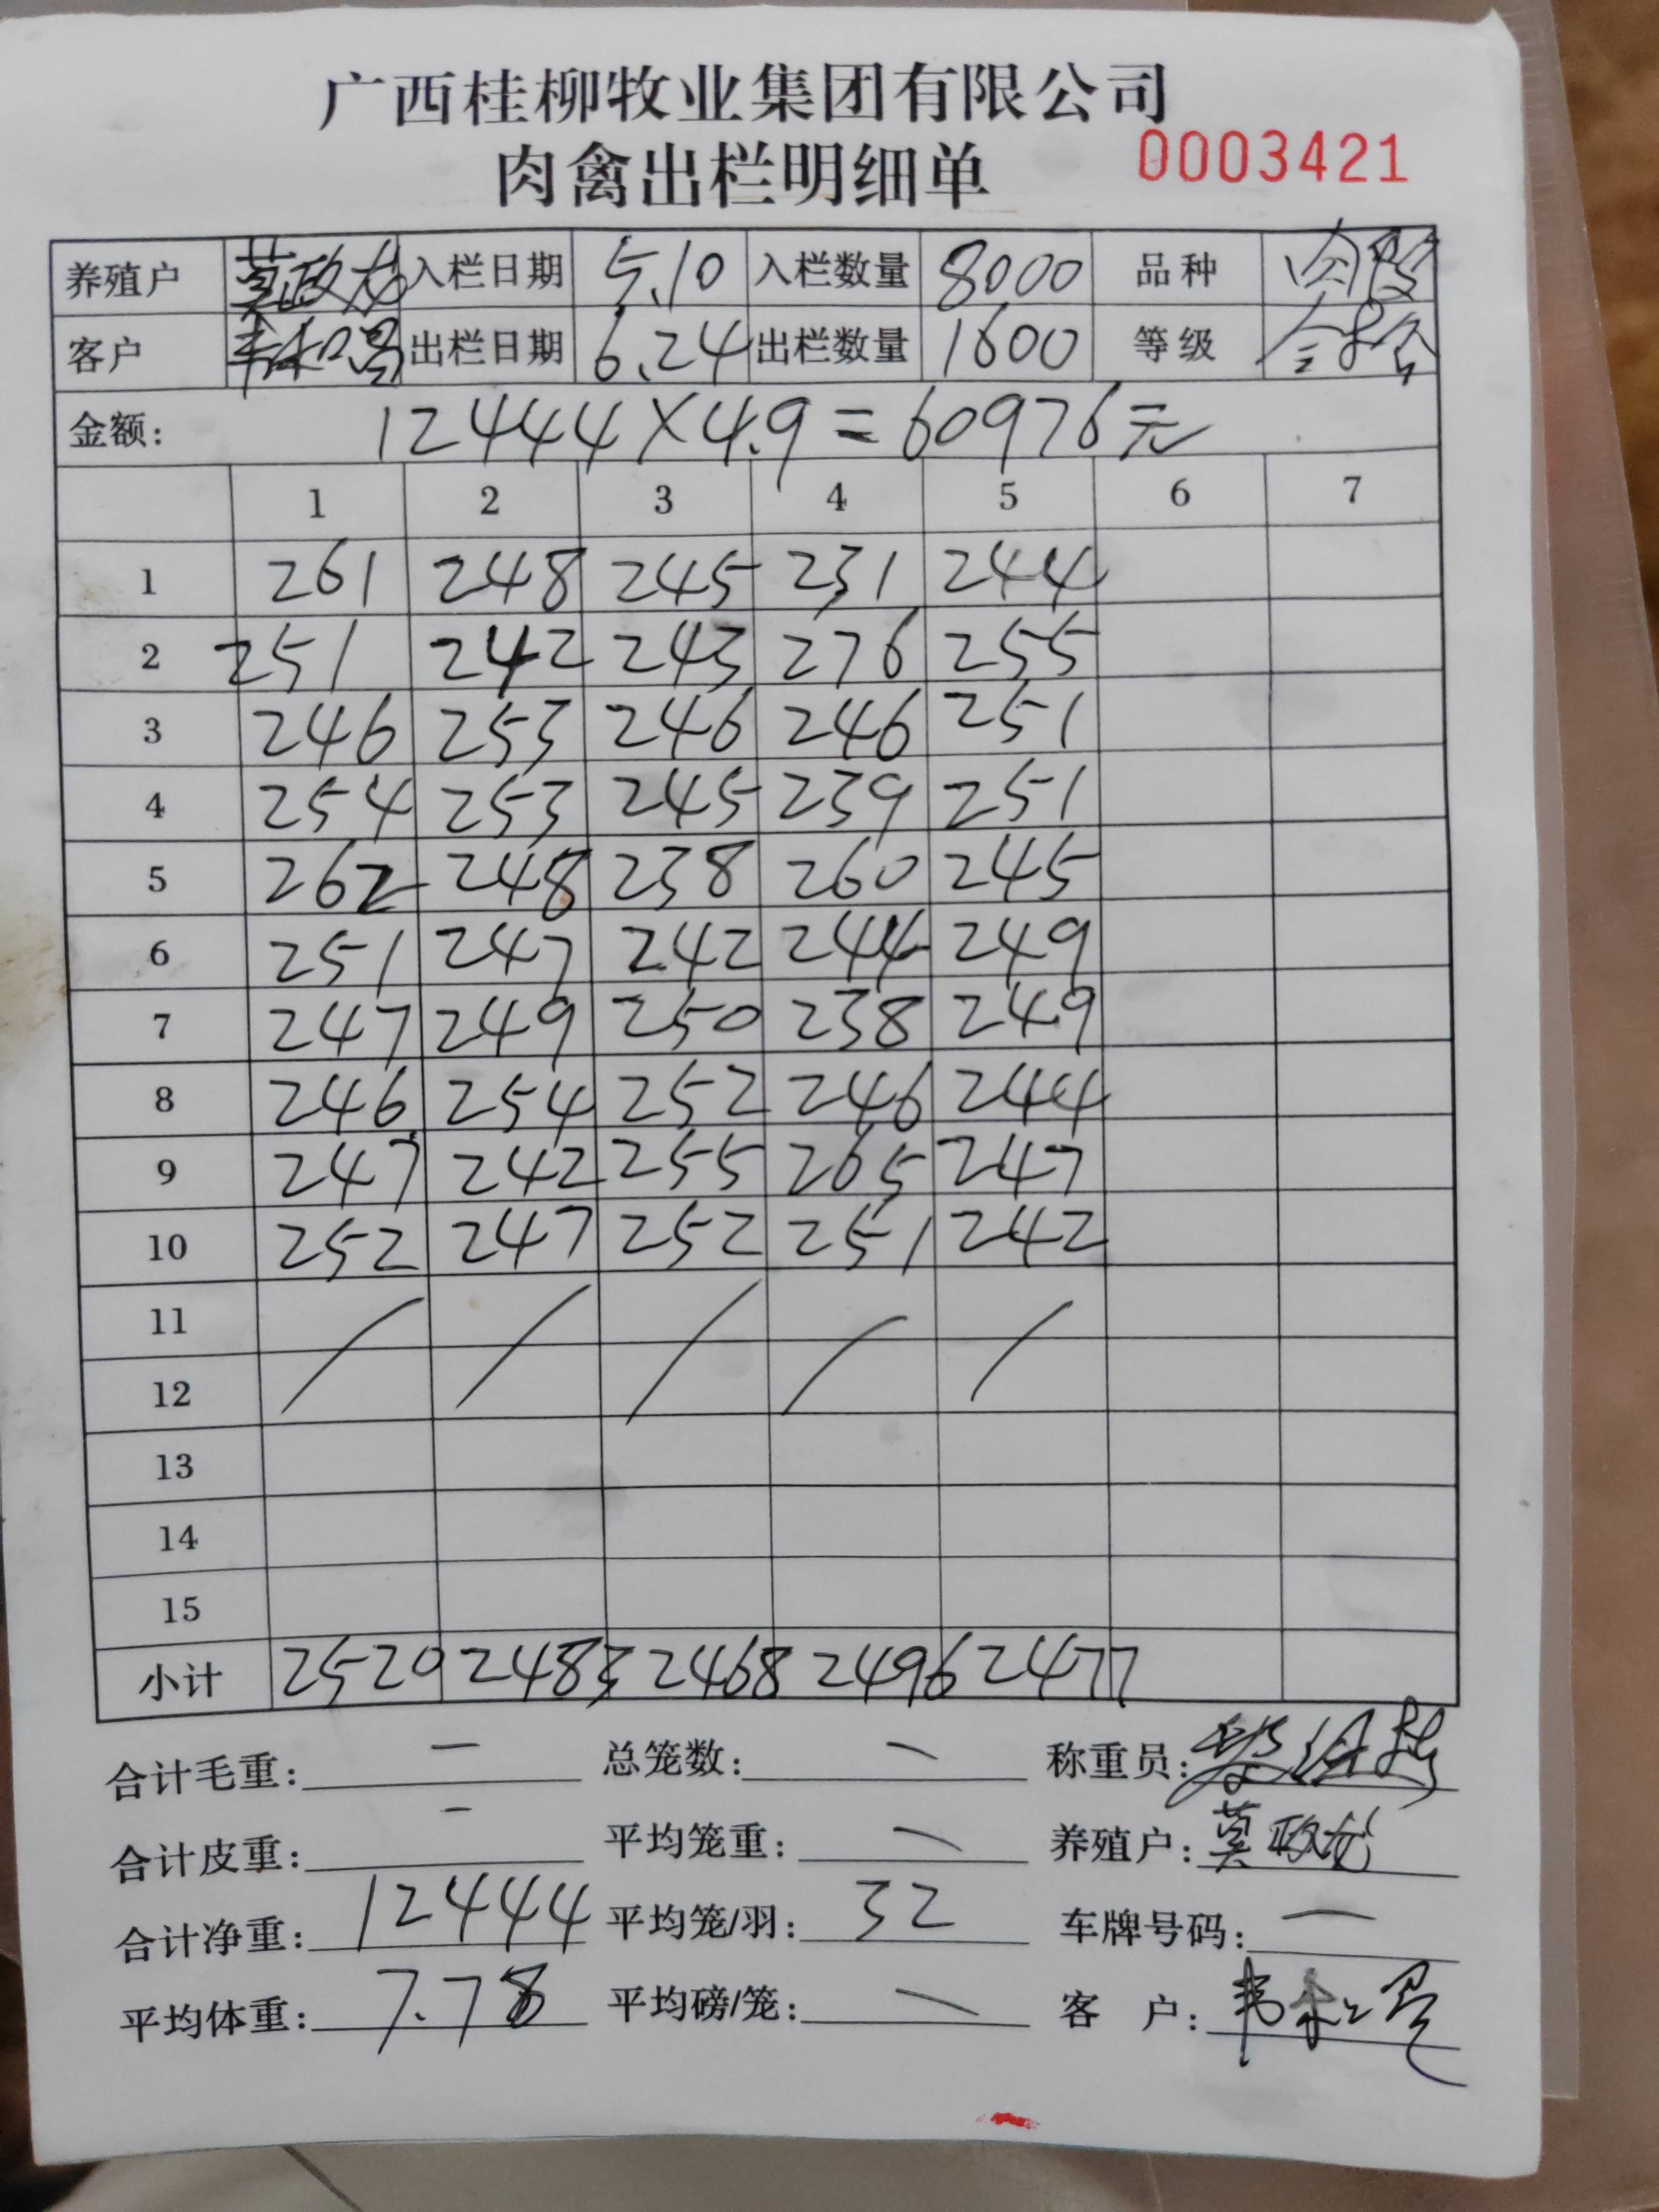 广西桂柳牧业集团有限公司
肉禽出栏明细单 0003421
养殖户 莫政龙 入栏日期 5.10 入栏数量 8000 品种 肉
客户 出栏日期 6.24 出栏数量 1600 等级 合格
金额: 12444×4.9=60976元
1 2 3 4 5 6 7
1 261 248 245 231 244
2 251 242 243 276 255
3 246 253 246 246 251
4 254 253 245 239 251
5 262 248 238 260 245
6 251 247 242 244 249
7 247 249 250 238 249
8 246 254 252 246 244
9 247 242 255 265 247
10 252 247 252 251 242
11
12
13
14
15
小计 2520 2483 2468 2496 2477
合计毛重: — 总笼数: — 称重员:
合计皮重: — 平均笼重: — 养殖户: 莫政龙
合计净重: 12444 平均笼/羽: 32 车牌号码: —
平均体重: 7.78 平均磅/笼: — 客户: 韦